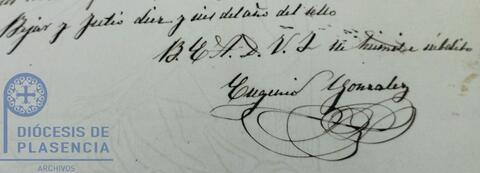 Bejar y Julio diez y seis del año del sello
B. E. A. D. V. S su humilde súbdito
Eugenio Gonzalez
DIÓCESIS DE
PLASENCIA
ARCHIVOS